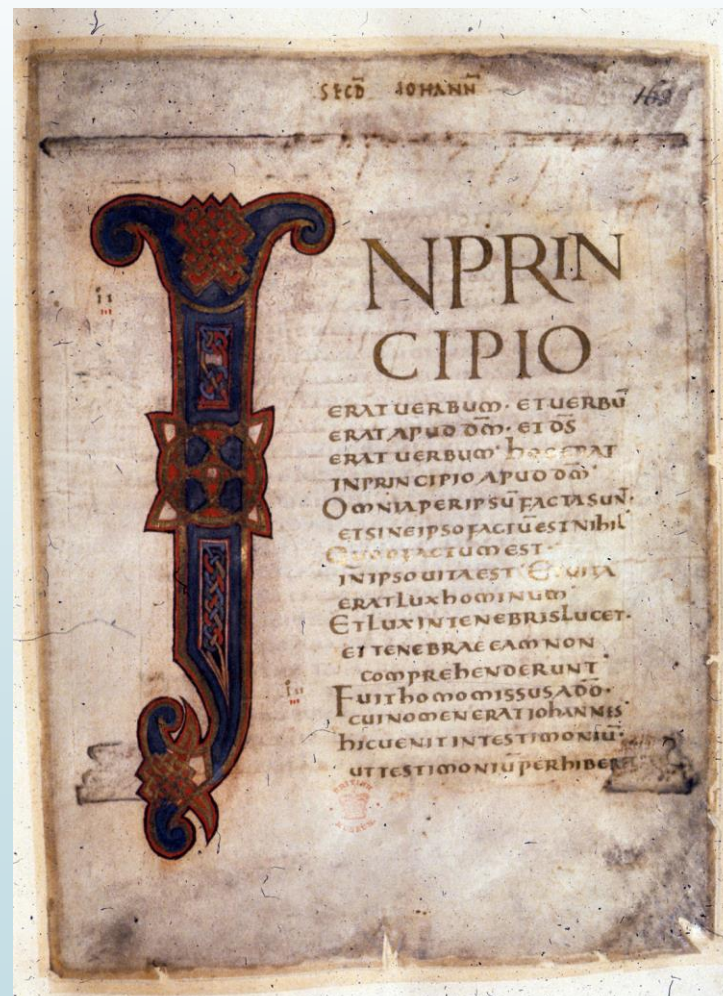 SECD̄ IOHANN̄
168
INPRIN
CIPIO
ERAT UERBUM· ET UERBŪ
ERAT APUD DM̄· ET DS̄
ERAT UERBUM· HOC ERAT
IN PRINCIPIO APUD DM̄·
OMNIA PER IPSŪ FACTA SUN̄·
ET SINE IPSO FACTŪ EST NIHIL·
QUOD FACTUM EST·
IN IPSO UITA EST· ET UITA
ERAT LUX HOMINUM·
ET LUX IN TENEBRIS LUCET·
ET TENEBRAE EAM NON
COMPREHENDERUNT·
FUIT HOMO MISSUS A DŌ·
CUI NOMEN ERAT IOHANNES
HIC UENIT IN TESTIMONIŪ·
UT TESTIMONIŪ PERHIBER
BRITISH
MUSEUM